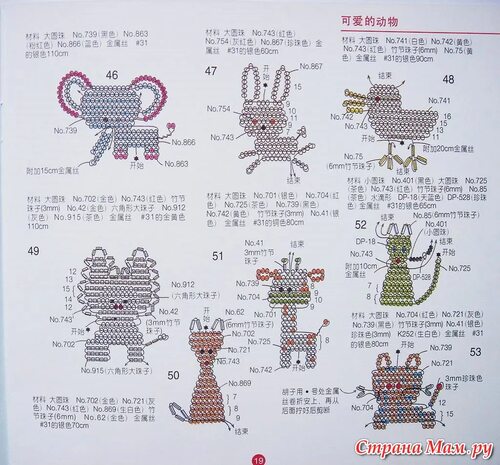 可爱的动物
材料 大圆珠 No.739(黑色) No.863
(粉红色) No.866(蓝色) 金属丝 #31
的银色110cm
46
No.739
No.866
No.863
开始
结束
附加15cm金属丝
材料 大圆珠 No.743(红色)
No.754(灰红色) No.867(珍珠色) 金
属丝 #31的银色60cm
47
开始
No.867
No.754
No.742
No.743
7
8
9
10
结束
材料 大圆珠 No.741(白色) No.742(黄色)
No.743(红色) 竹节珠子(3mm) No.75(黄
色) 金属丝 #31的银色90cm
48
结束
开始
No.742
No.741
No.743
16
15
13
12
附加20cm金属丝
No.75
(6mm竹节珠子)
材料 大圆珠 No.702(金色) No.743(红色) 竹节
珠子(3mm) No.42(金色) 六角形大珠子 No.912
(灰色) No.915(茶色) 金属丝 #31的金黄色
110cm
49
No.912
(六角形大珠子)
No.42
(3mm竹节
珠子)
No.743
No.702
开始
No.915(六角形大珠子)
结束
材料 大圆珠 No.701(银色) No.704(红
色) No.725(茶色) No.739(黑色)
No.742(黄色) 竹节珠子(3mm) No.41(银
色) 金属丝 #31的铜色80cm
51
No.41
(3mm竹节
珠子)
结束
No.739
No.704
No.701
No.742
No.725
开始
材料 小圆珠 No.401(黑色) 大圆珠 No.725
(茶色) No.743(红色) 竹节珠子(6mm) No.85
(茶色) 水滴形 DP-18(天蓝色) DP-528(珍珠
色) 金属丝 #31的银色65cm
52
No.85(6mm竹节珠子)
No.401
(小圆珠)
DP-18
No.743
No.725
附加10cm
金属丝
DP-528
开始
结束
50
No.62
(6mm竹节
珠子)
No.721
No.743
No.869
7
8
9
开始
结束
材料 大圆珠 No.702(金色) No.721(灰
色) No.743(红色) No.869(生白色) 竹
节珠子(6mm) No.62(金色) 金属丝
#31的银色70cm
材料 大圆珠 No.704(红色) No.721(灰色)
No.739(黑色) 竹节珠子(3mm) No.41(银色)
珍珠色(3mm) K252(生白色) 金属丝 #31的
银色110cm
53
No.739
No.41
开始
No.721
3mm珍珠色
珠子
No.704
12
15
结束
胡子用・号处金属
丝卷折安上、再从
后面拧好后剪断
19
Страна Мам.ру